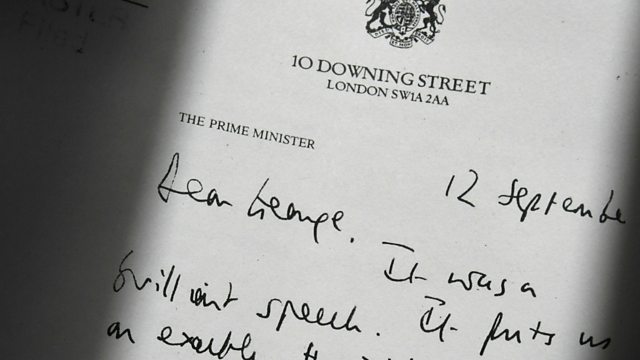 10 DOWNING STREET
LONDON SW1A 2AA
THE PRIME MINISTER
12 Septembe
Dear George.
It was a
brilliant speech. It puts us
on exactly the